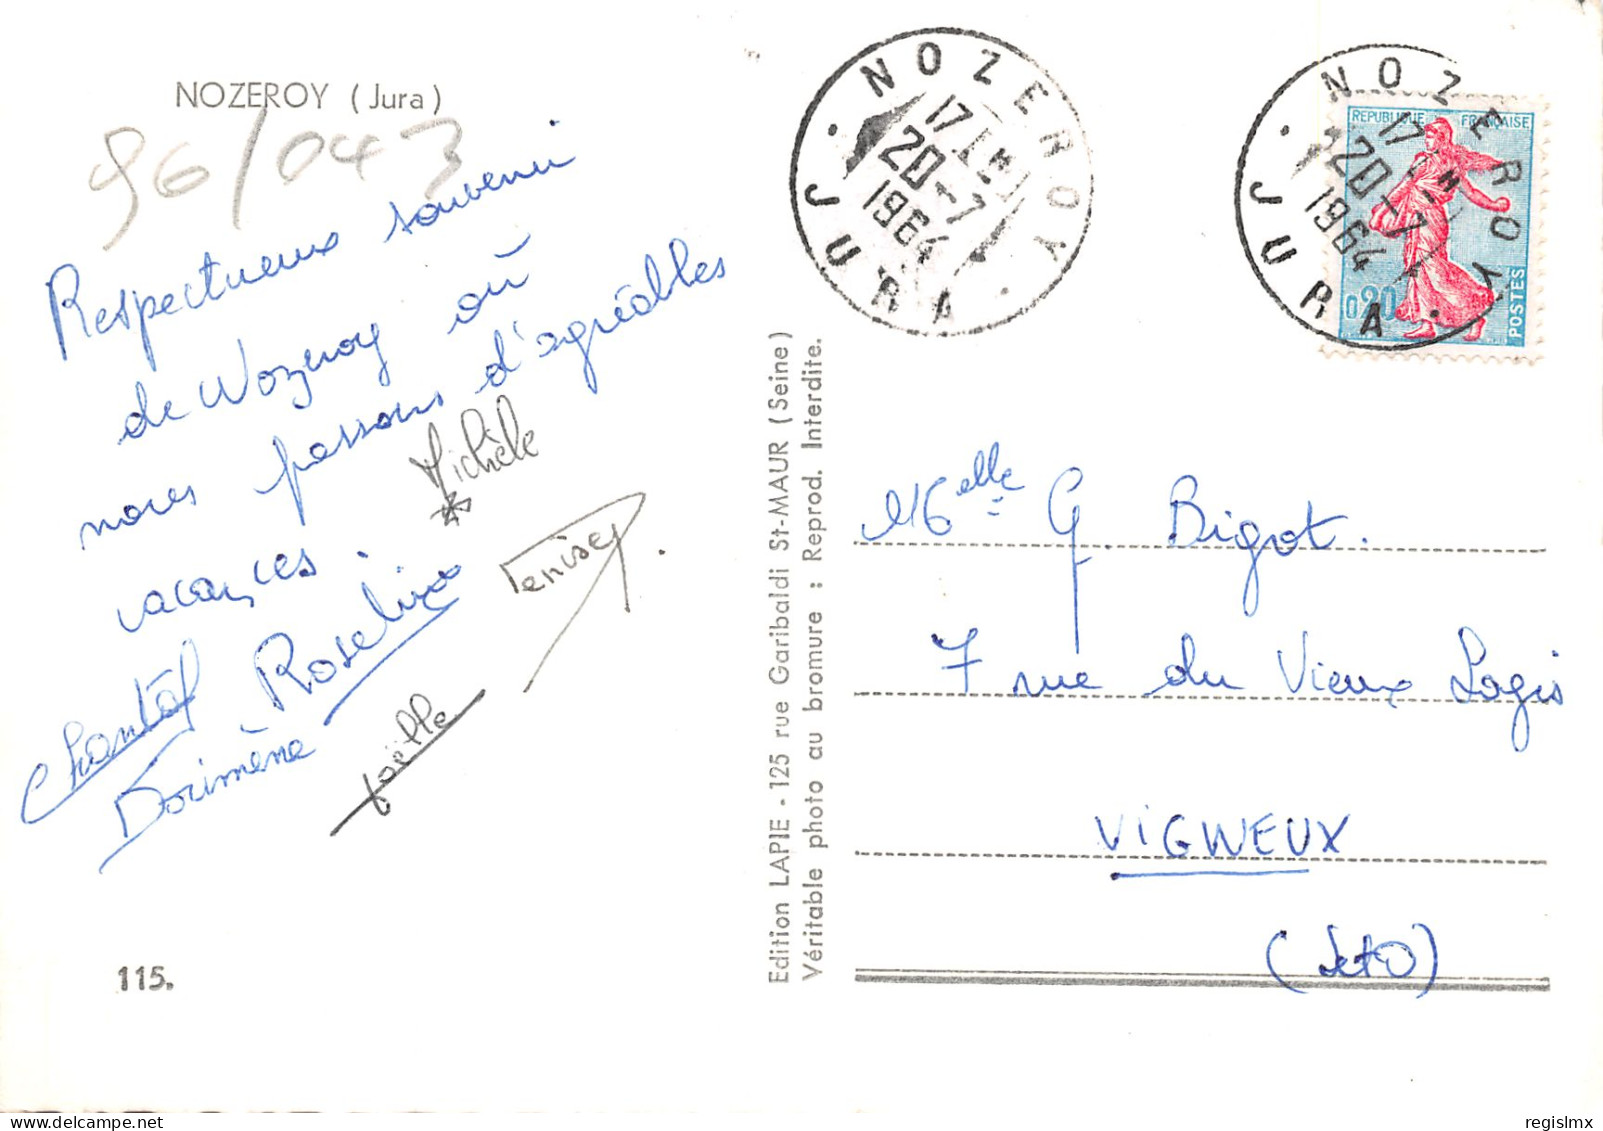 NOZEROY (Jura)
96/043
Respectueux souvenir
de Nozeroy où
nous passons d'agréables
vacances.
Michèle
Roseline
Chantal
Dorimène
Joëlle
115.
Edition LAPIE - 125 rue Garibaldi St-MAUR (Seine)
Véritable photo au bromure : Reprod. Interdite.
NOZEROY
17H
20-7
1964
JURA
NOZEROY
17H
20-7
1964
JURA
REPUBLIQUE FRANÇAISE
0,20
POSTES
Melle G. Bigot.
7 rue du Vieux Logis
ViGNEUX
(S et O)
regislmx